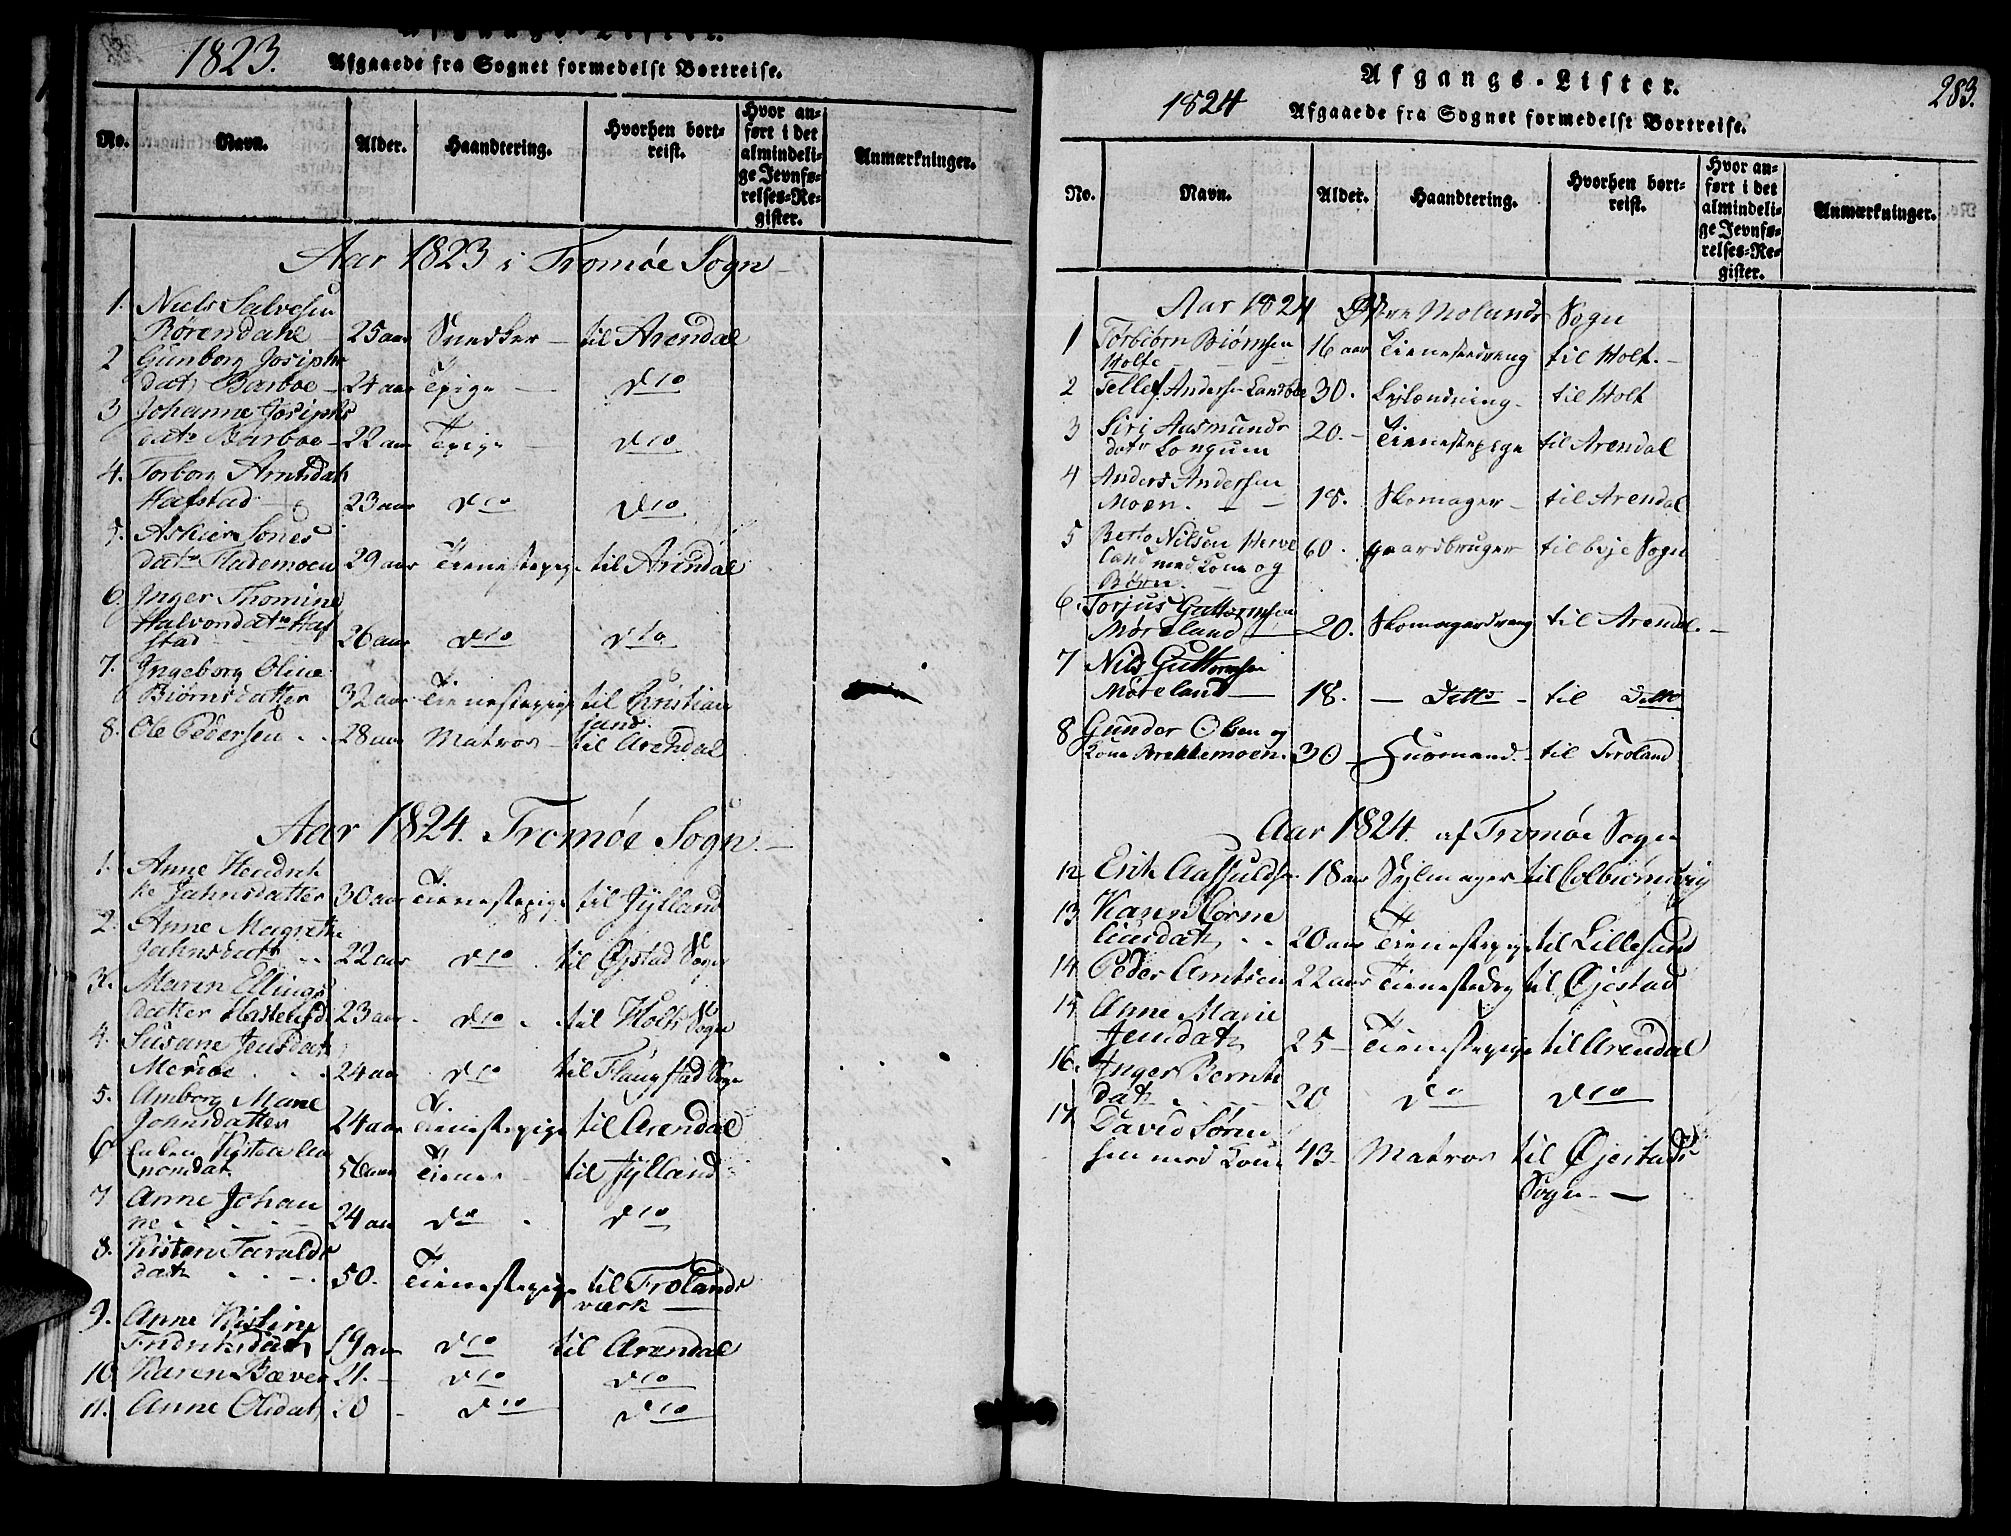 1823.
Afgangs-Lister.
Afgaaede fra Sognet formedelst Bortreise.
No. Navn. Alder. Haandtering. Hvorhen bortreist. Hvor anført i det almindelige Jevnførelses-Register. Anmærkninger.
Aar 1823 i Tromøe Sogn
1. Niels Salvesen
Børendahl 25 aar Snedker til Arendal
2 Gunborg Josephs
dat. Barboe 24 aar Tpige dto
3 Johanne Josephs
datr Barboe 22 aar Tpige dto
4. Torbor Arnesdatr
Hafstad 23 aar dto dto
5. Askier Jones
datr Hademoen 29 aar Tienestepige til Arendal
6. Inger Thomine
Halvorsdatr Haf
stad 26 aar dto dto
7. Ingeborg Oline
Biørnsdatter 32 aar Tienestepige til Christian
sand.
8. Ole Pedersen 28 aar Matros til Arendal
Aar 1824. Tromøe Sogn.
1. Anne Hendrik
ke Jahnsdatter 30 aar Tienestepige til Jylland
2. Anne Magrethe
Jahnsdatr 22 aar dto til Øjestad Sogn
3. Maren Ellings
datter 23 aar dto til Holts Sogn
4. Susane Jensdatr
Merdøe 24 aar dto til Sogn
5. Amborg Marie
Johnsdatter 24 aar Tienestepige til Arendal
6 Kisten
56 aar Tiener til Jylland
7 Anne Johan
ne 24 aar dto dto
8. Kisten Taralds
datr 50. Tienestepige til Frolands
værk
9. Anne Kistine
Fridriksdatr 19 aar dto til Arendal
10 Karen Bæver 21. dto dto
11. Anne Olsdatr 20 dto dto
283.
Afgangs-Lister.
1824 Afgaaede fra Sognet formedelst Bortreise.
No. Navn. Alder. Haandtering. Hvorhen bortreist. Hvor anført i det almindelige Jevnførelses-Register. Anmærkninger.
Aar 1824 Østre Molands Sogn
1 Torbiørn Biørnsen
Holte 16 aar Tienestedreng til Holt.
2 Tellef Andersen Landbøe 30. til Holt
3 Siri Aasmunds
datr Longum 20. Tienestepige til Arendal
4 Anders Andersen
Moen. 18. Skomager til Arendal
5 Nilsen Herve
land med Kone og 60. Gaardbruger til Sogn
Børn
6. Torjus Guttormsen
Møreland 20. Skomagerdreng til Arendal.
7 Nils Guttormsen
Møreland 18. Ditto til Ditto
8 Gunder Olsen og
Kone Brekkemoen. 30 Huusmand. til Froland
Aar 1824 af Tromøe Sogn
12 Erik 18 aar Sejlmager til Colbiørnsvig
13. Karen Corne
liusdatr 20 aar Tienestepige til Lillesand
14. Peder Arntsen 22 aar Tienestedrg til Øjestad
15 Anne Marie
Jensdatr 25 Tienestepige til Arendal
16. Inger Bernts
datr 20 do dto
17. David Søren
sen med Kone 43 Matros til Øjestads
Sogn